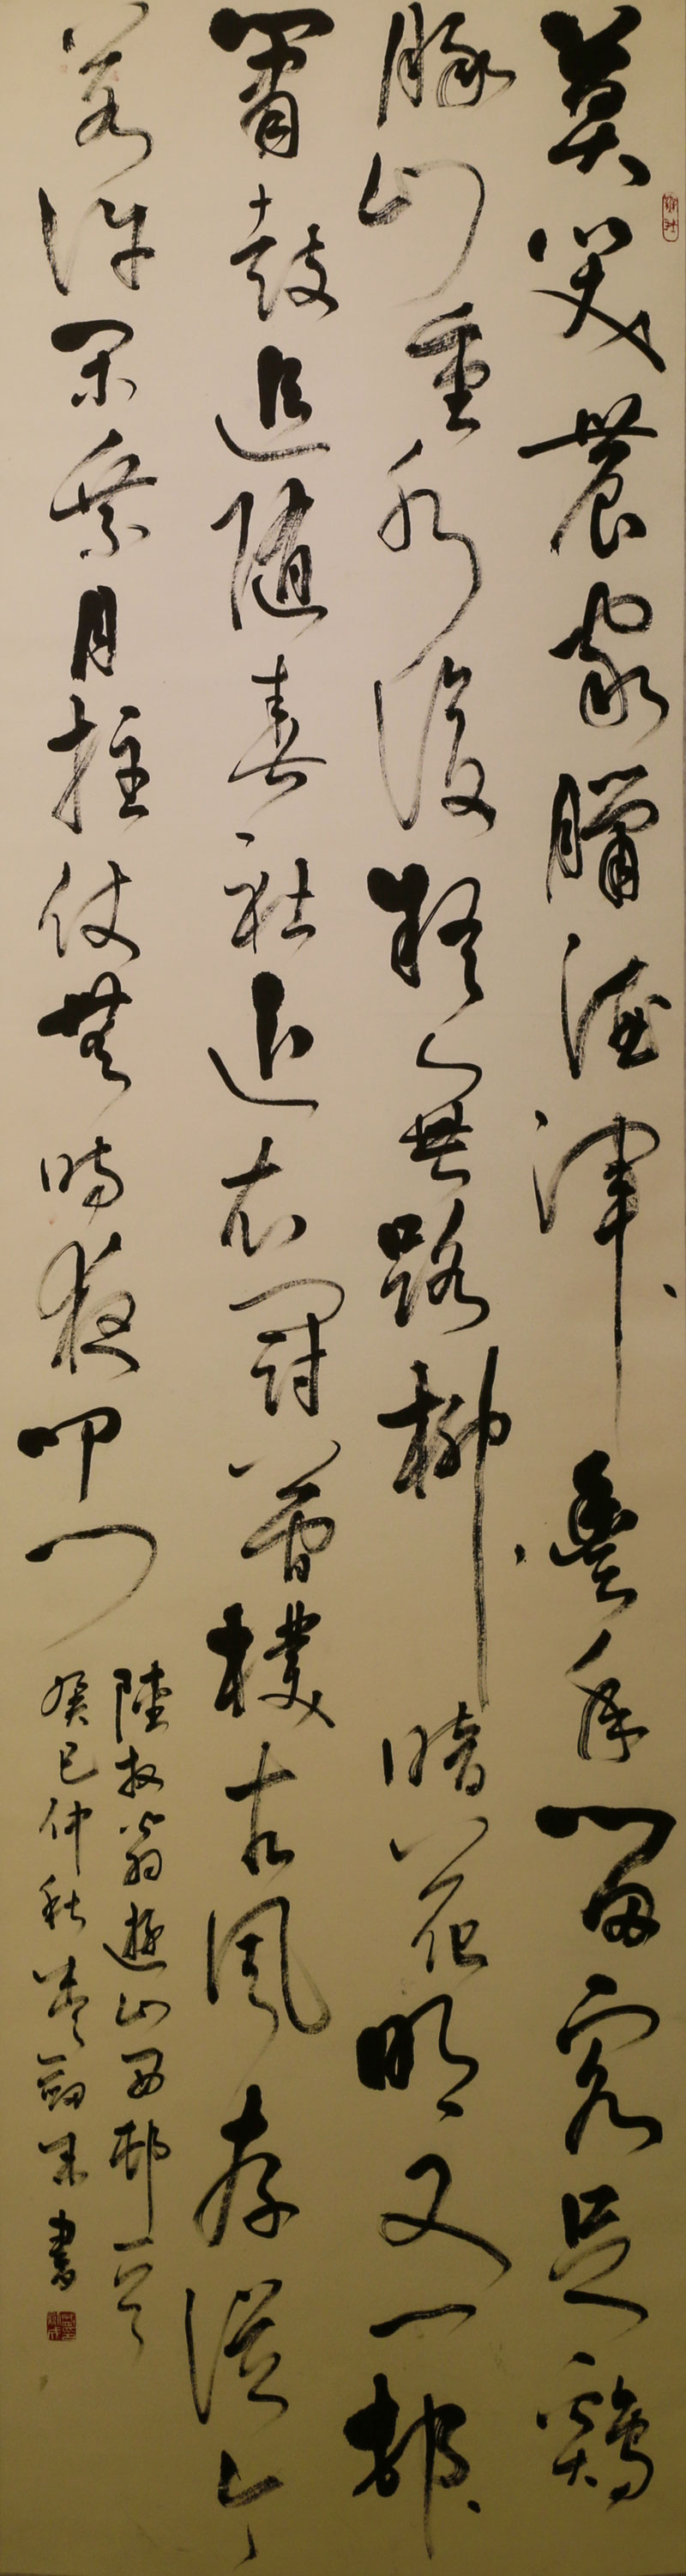 莫笑農家臘酒渾豐年留客足鷄
豚山重水複疑無路柳暗花明又一邨
簫鼓追隨春社近衣冠簡樸古風存從今
若許閑乘月拄杖無時夜叩門
陸放翁遊山西邨一首
癸巳仲秋 書